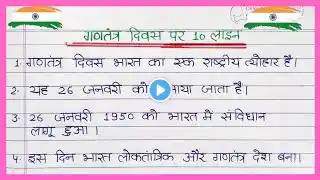 गणतंत्र दिवस पर 10 लाइन
1. गणतंत्र दिवस भारत का एक राष्ट्रीय त्योहार है।
2. यह 26 जनवरी को या जाता है।
3. 26 जनवरी 1950 को भारत में संविधान
लागू हुआ।
4. इस दिन भारत लोकतांत्रिक और गणतंत्र देश बना।